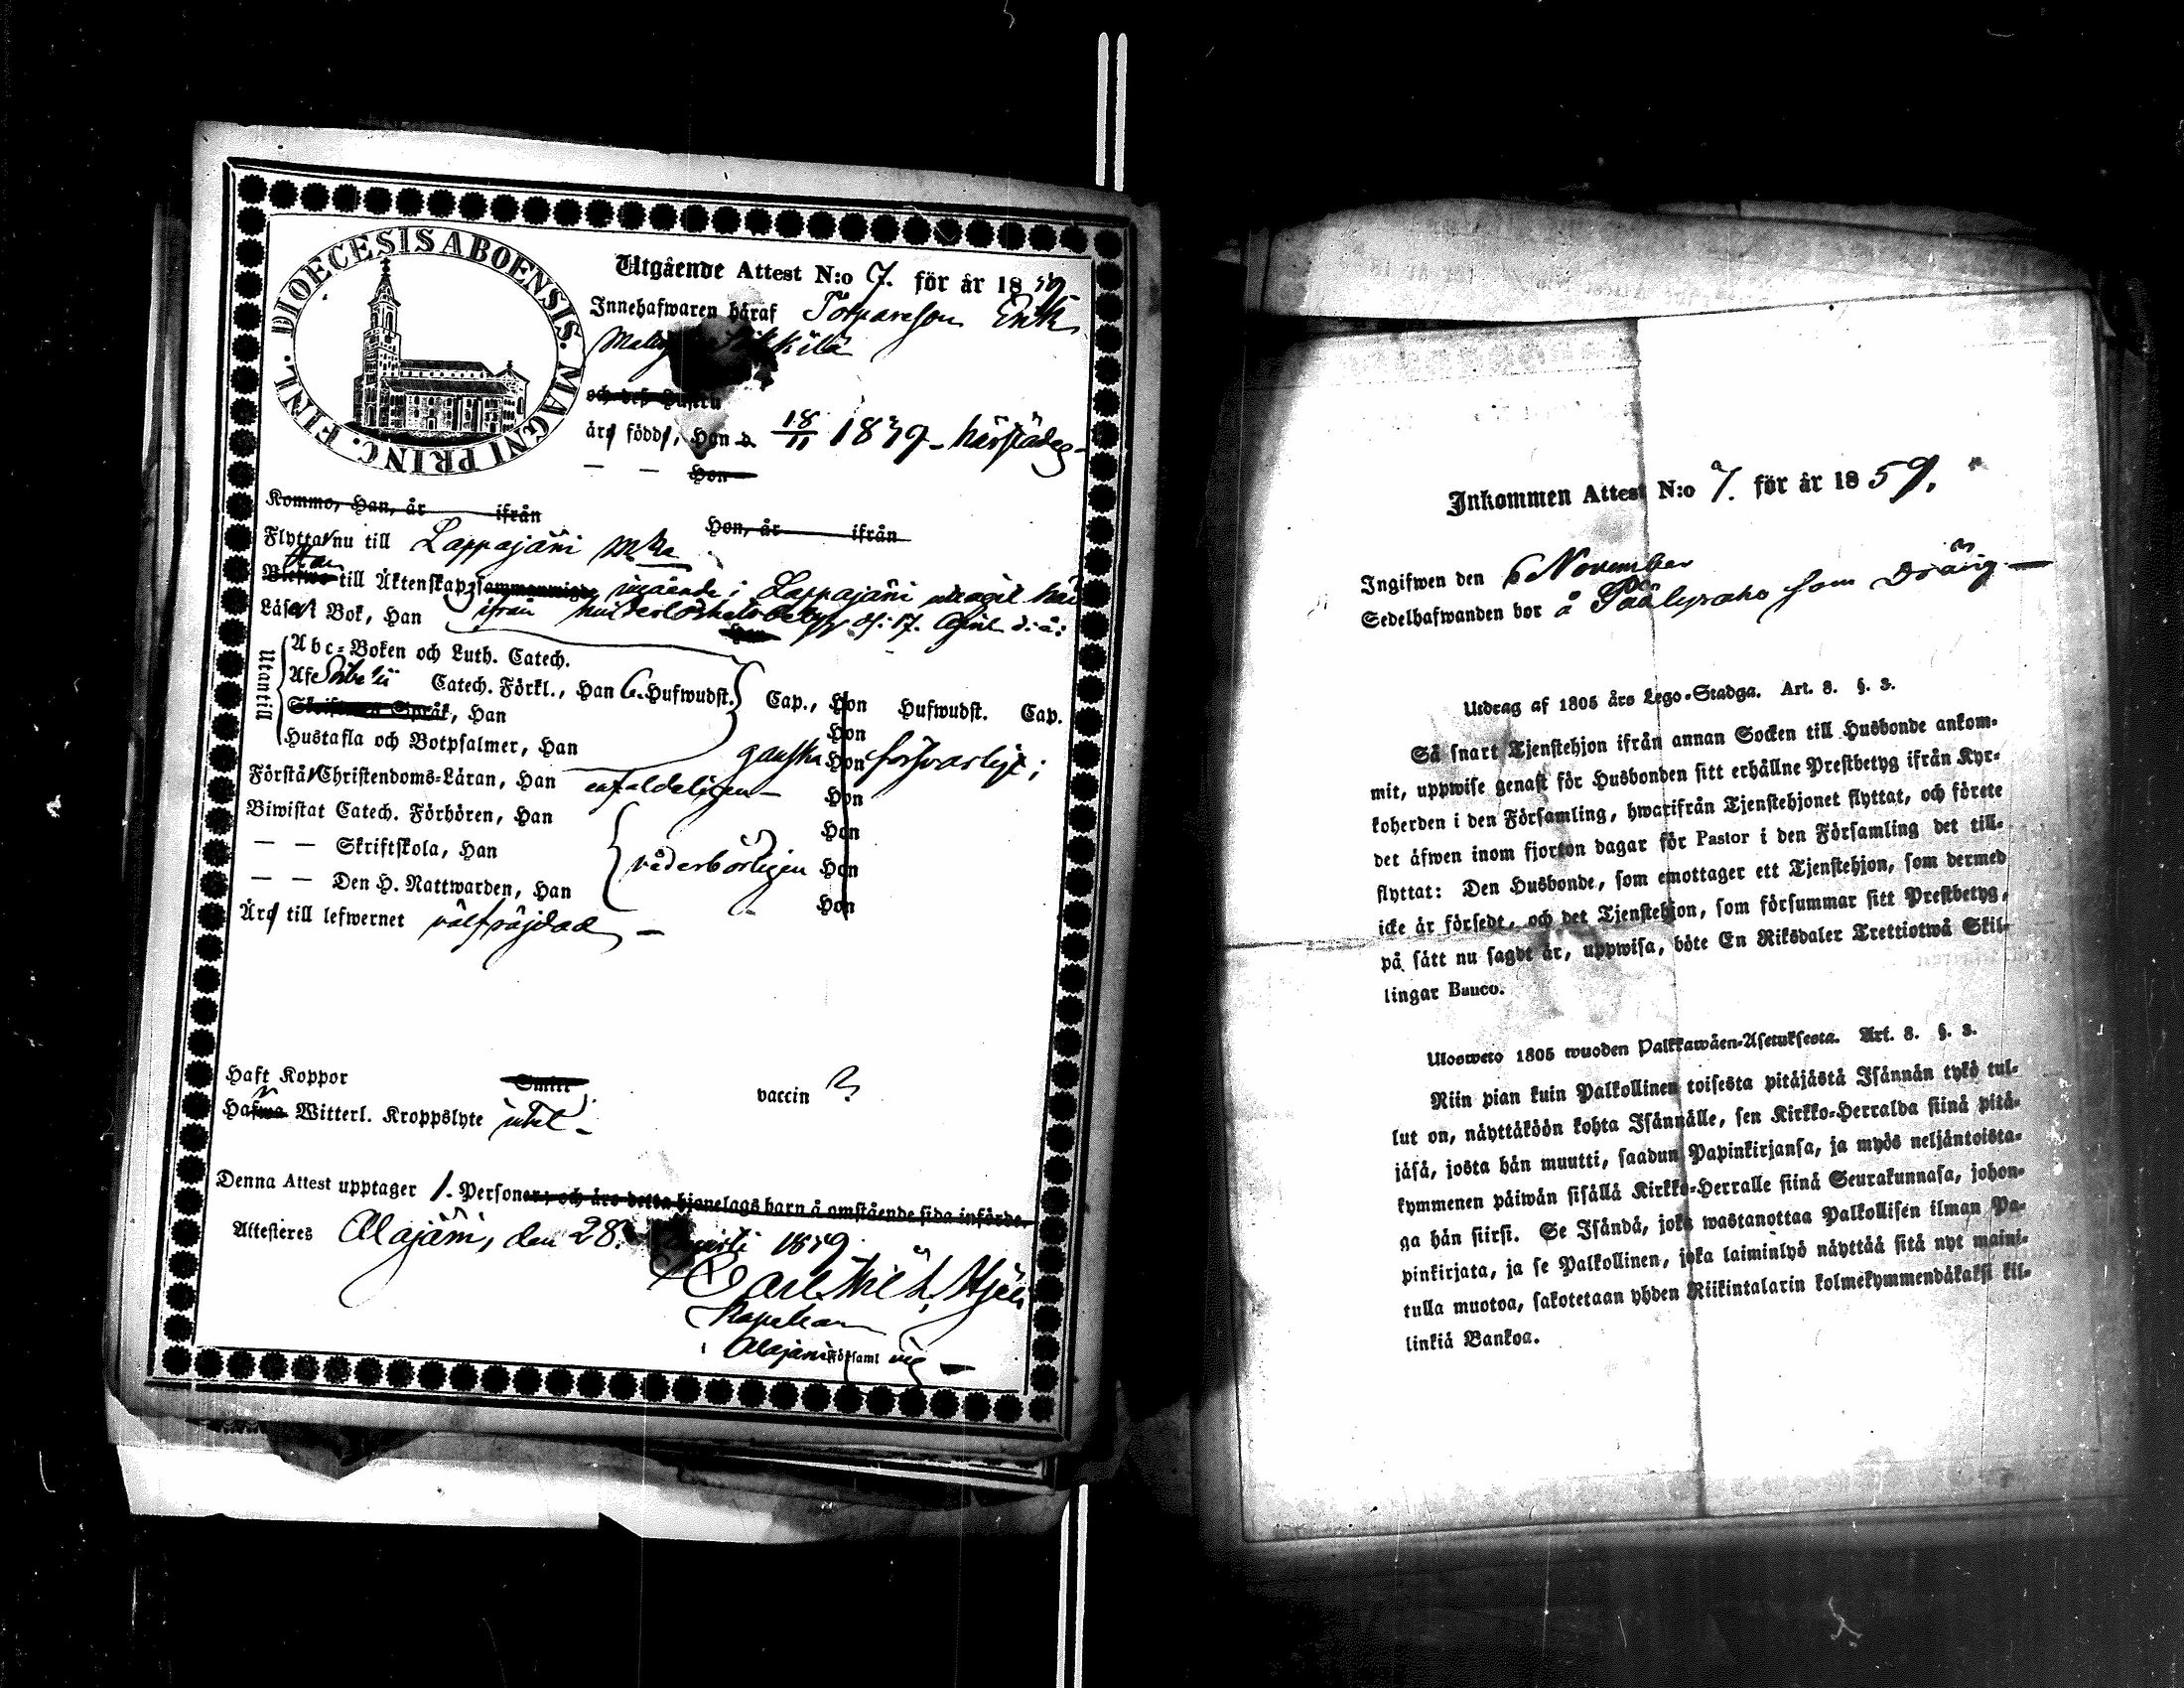 DIOECESIS ABOENSIS. MAGNI PRINC. FINL.
Utgående Attest N:o 7. för år 1859
Innehafwaren häraf Torparesson Erik
Matts kilä
och deß Hustru
äro födde, Han d. 18/11 1839 härstädes
— — Hon
Kommo, Han, år ifrån Hon, år ifrån
Flytta nu till Lappajärvi mka
Han
Blefwo till Äktenskap sammanwigde ingående i Lappajärvi
ifrån hinderlöshetsbetyg af: 17. April d: å:
Läsa i Bok, Han
Utantill
Abc-Boken och Luth. Catech.
Af Catech. Förkl., Han 6. Hufwudst. Cap., Hon Hufwudst. Cap.
Skriftenes Språk, Han Hon
Hustafla och Botpsalmer, Han ganska Hon försvarligt;
Förstå Christendoms-Läran, Han enfaldeligen Hon
Biwistat Catech. Förhören, Han Hon
— — Skriftskola, Han vederbörligen Hon
— — Den H. Nattwarden, Han Hon
Äro till lefwernet välfräjdad
Haft Koppor Smitt vaccin ?
Hafwa Witterl. Kroppslyte intet
Denna Attest upptager 1. Personer, och äro detta hjonelags barn å omstående sida införde.
Attesteres Alajärvi, den 28. 1859
Carl Wilh. Hjelt
Kapellan
i Alajärvi Församl
Inkommen Attest N:o 7. för år 1859.
Ingifwen den 6 November
Sedelhafwanden bor å Päälysaho som Dräng
Utdrag af 1805 års Lego-Stadga. Art. 8. §. 3.
Så snart Tjenstehjon ifrån annan Socken till Husbonde ankom-
mit, uppwise genast för Husbonden sitt erhållne Prestbetyg ifrån Kyr-
koherden i den Församling, hwarifrån Tjenstehjonet flyttat, och förete
det äfwen inom fjorton dagar för Pastor i den Församling det till-
flyttat: Den Husbonde, som emottager ett Tjenstehjon, som dermed
icke är försedt, och det Tjenstehjon, som försummar sitt Prestbetyg,
på sätt nu sagdt är, uppwisa, böte En Riksdaler Trettiotwå Skil-
lingar Banco.
Ulosweto 1805 wuoden Palkkawäen-Asetuksesta. Art. 8. §. 3.
Niin pian kuin Palkollinen toisesta pitäjästä Isännän tykö tul-
lut on, näyttäköön kohta Isännälle, sen Kirkko-Herralda siinä pitä-
jäsä, josta hän muutti, saadun Papinkirjansa, ja myös neljäntoista-
kymmenen päiwän sisällä Kirkko-Herralle siinä Seurakunnasa, johon-
ga hän siirsi. Se Isändä, joka wastanottaa Palkollisen ilman Pa-
pinkirjata, ja se Palkollinen, joka laiminlyö näyttää sitä nyt maini-
tulla muotoa, sakotetaan yhden Riikintalarin kolmekymmendäkaksi kil-
linkiä Bankoa.